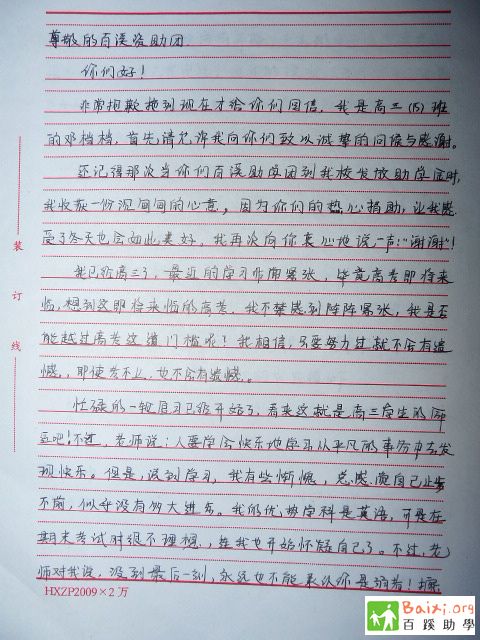 尊敬的百溪资助团
你们好!
非常抱歉拖到现在才给你们回信,我是高三(15)班
的邓档档,首先请允许我向你们致以诚挚的问候与感谢。
还记得那次当你们百溪助学团到我校发放助学金时,
我收获一份沉甸甸的心意,因为你们的热心捐助,让我感
受了冬天也会如此美好,我再次向你衷心地说一声:“谢谢”!
我已经高三了,最近的学习非常紧张,毕竟高考即将来
临,想到这即将来临的高考,我不禁感到阵阵紧张,我是否
能越过高考这道门槛呢!我相信,只要努力过就不会有遗
憾,即使考不上,也不会有遗憾。
忙碌的一轮复习已经开始了,看来这就是高三学生的
吧!不过,老师说:人要学会快乐地学习从平凡的事务中去发
现快乐。但是,谈到学习,我有些惭愧,总感觉自己止步
不前,似乎没有多大进步。我的优势学科是英语,可是在
期末考试时很不理想,连我也开始怀疑自己了。不过,老
师对我说,没到最后一刻,永远也不能承认你是弱者!
装
订
线
HXZP2009×2万
Baixi.org
百蹊助學